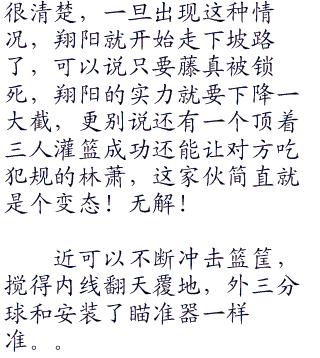 很清楚，一旦出现这种情
况，翔阳就开始走下坡路
了，可以说只要藤真被锁
死，翔阳的实力就要下降一
大截，更别说还有一个顶着
三人灌篮成功还能让对方吃
犯规的林萧，这家伙简直就
是个变态！无解！
近可以不断冲击篮筐，
搅得内线翻天覆地，外三分
球和安装了瞄准器一样
准。。